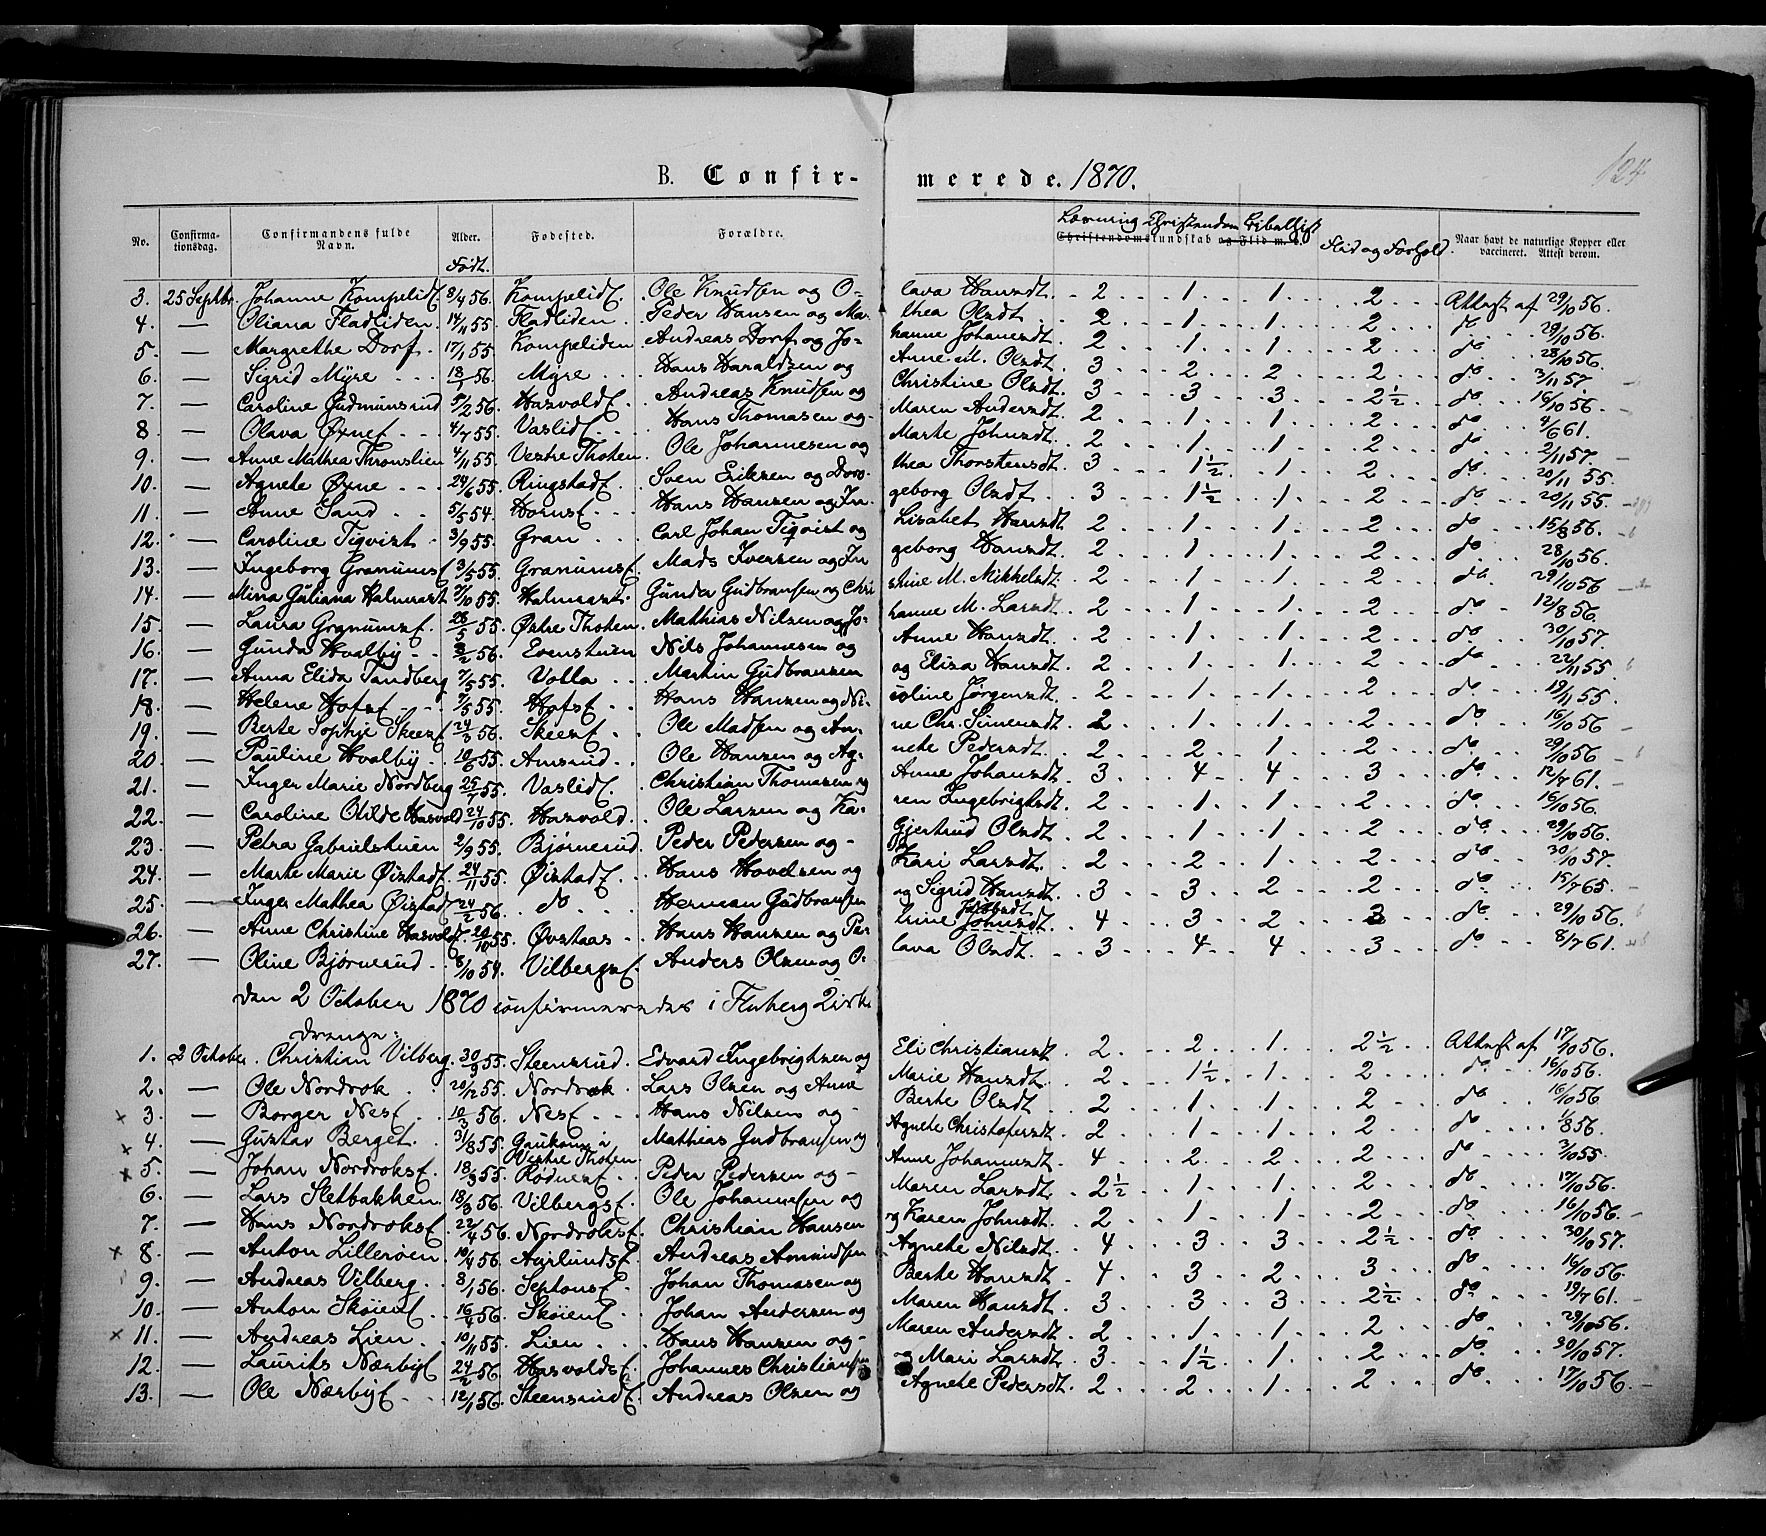 B. Confir- merede. 1870. 124
No. Confirmationsdag. Confirmandens fulde Navn. Alder. Født. Fødested. Forældre. Lærning Christendom Bibelhist Christendomskundskab og Flid m. v. Flid og Forhold. Naar havt de naturlige Kopper eller vaccineret. Attest derom.
3. 25 Septbr. Johanne Kompelidf. 8/4 56. Kompelidf. Ole Knudsen og O- lava Hansdt. 2 1 1 2 Attest af 29/10 56.
4. — Oliana Fladliden. 14/11 55. Fladliden. Peder Hansen og Ma- thea Olsdt. 2 1 1 2 do 29/10 56.
5. — Margrethe Dorf. 17/1 55. Kompeliden Andreas Dorf og Jo- hanne Johansdt. 2 1 1 2 do 28/10 56.
6. — Sigrid Myre 56. Myre Hans Haraldsen og Anne M. Olsdt. 3 2 2 2 do 3/11 57.
7. — Caroline Gudmunsrud 5/2 56. Hasvoldf. Andreas Knudsen og Christine Olsdt. 3 3 3 2½ do 16/10 56.
8. — Olava Øxnef 4/7 55. Vaslidf. Hans Thomasen og Maren Andersdt. 2 1 1 2 do 61.
9. — Anne Mathea Thronslien 4/11 55. Vestre Thoten. Ole Johannesen og Marte Johnsdt. 2 1 1 2 do 2/11 57.
10. — Agnete Øxne 24/6 55. Ringstadf. Sven Eriksen og Doro- thea Thorstensdt. 3 1½ 1 2 do 20/11 55.
11. — Anne Sand 5/5 54. Hornsf. Hans Hansen og In- geborg Olsdt. 3 1½ 1 2 do 20/11 55.
12. — Caroline Tiqvist 3/9 55. Gran Carl Johan Tiqvist og Lisabet Hansdt. 2 1 1 2 do 15/8 56.
13. — Ingeborg Granumsf. 3/5 55. Granumsf. Mads Iversen og In- geborg Hansdt. 2 1 1 2 do 28/10 56.
14. — Mina Juliana Halmrast 55. Halmrast. Gunder Gudbransen og Chri stine M. Mikkelsdt. 2 1 1 2 do 29/10 56
15. — Laura Granumsf. 28/5 55. Østre Thoten. Mathias Nilsen og Jo- hanne M. Larsdt. 2 1 1 2 do 12/8 56.
16. — Gunda Hvalby 56. Evenstuen Nils Johannesen og Anne Hansdt. 2 1 1 2 do 30/10 57.
17. — Anna Elida Sandberg 7/5 55. Volla Martin Gudbransen og Eliza Hansdt. 2 1 1 2 do 22/11 55.
18. — Helene Hofsf. 7/5 55. Hofsf. Hans Hansen og Ni- coline Jørgensdt. 2 1 1 2 do 19/11 55.
19. — Berte Sophje Skeenf 24/3 56. Skeenf. Ole Madsen og An- ne Chr. Simensdt. 2 1 1 2 do 16/10 56
20. — Pauline Hvalby 10/6 55. Amsrud. Ole Hansen og Ag- nete Pedersdt. 2 2 1 2 do 29/10 56
21. — Inger Marie Nordberg 25/7 55. Vaslidf. Christian Thomasen og Anne Johansdt. 3 4 4 3 do 12/7 61.
22. — Caroline Otilde Hasvold 24/10 55. Hasvold. Ole Larsen og Ka- ren Ingebrigtsdt. 2 1 1 2 do 16/10 56.
23. — Petra Gabrielstuen 2/9 55. Bjørnerud. Peder Pedersen og Gjertrud Olsdt. 2 1 1 2 do 29/10 56.
24. — Marte Marie Øistadf. 24/11 55. Øistadf. Hans Hovelsen og Kari Larsdt. 2 2 1 2 do 30/10 57.
25. — Inger Mathea Øistad 24/2 56. do Herman Gudbransen og Sigrid Hansdt. 3 3 2 2 do 15/7 65.
26. — Anne Christine Hasvoldf. 55. Øvstaas Hans Hansen og Pe- trine Johnsdt. 4 3 2 3 do 29/10 56.
27. — Oline Bjørnerud 8/10 54. Vilbergsf. Anders Olsen og O- lava Olsdt. 3 4 4 3 do 8/7 61.
Den 2 October 1870 confirmeredes i Fluberg Zirke
Drenge:
1. 2 October. Christian Vilberg. 30/9 55. Steensrud. Edvard Ingebrigtsen og Eli Christiansdt 2 2 1 2½ Attest af 17/10 56.
2. — Ole Nordrok 20/12 55. Nordrok. Lars Olsen og Anne Marie Hansdt. 2 1½ 1 2 do 16/10 56.
x 3. — Borger Nesf. 10/3 56. Nesf. Hans Nilsen og Berte Olsdt 2 1 1 2 do 16/10 56
x 4. — Gustav Berget. 31/8 55. Gaukom i Vestre Thoten. Mathias Gudbransen og Agnete Christofersdt. 2 1 1 2 do 1/8 56.
x 5. — Johan Nordroksf. 18/9 55. Rødnesf. Peder Pedersen og Anne Johannesdt. 4 2 2 2 do 3/10 55.
6. — Lars Sletbakken 18/3 56. Vilbergsf. Ole Johannesen og Maren Larsdt. 2½ 1 1 2 do 17/10 56.
7. — Hans Nordroksf. 22/4 56. Nordroksf. Christian Hansen og Karen Johnsdt. 2 1 1 2 do 16/10 56.
x 8. — Anton Lillerøen 10/4 56. Aurlundsf. Andreas Amundsen Agnete Nilsdt. 4 3 3 2½ do 30/10 57.
9. — Andreas Vilberg. 8/1 56. Septonsf. Johan Thomasen og Berte Hansdt. 4 3 2 3 do 16/10 56.
10. — Anton Skøienf. 16/4 56. Skøienf. Johan Andersen og Maren Hansdt. 3 3 3 2½ do 19/7 61.
x 11. — Andreas Lien 10/11 55. Lien Hans Hansen og Maren Andersdt. 2 1 1 2 do 29/10 56.
12. — Laurits Nærbyf. 24/2 56. Hasvoldsf. Johannes Christiansen og Mari Larsdt. 3 1½ 1 2 do 30/10 57.
13. — Ole Nærbyf. 12/1 56. Steensrudf. Andreas Olsen og Agnete Pedersdt. 2 2 1 2 do 17/10 56.